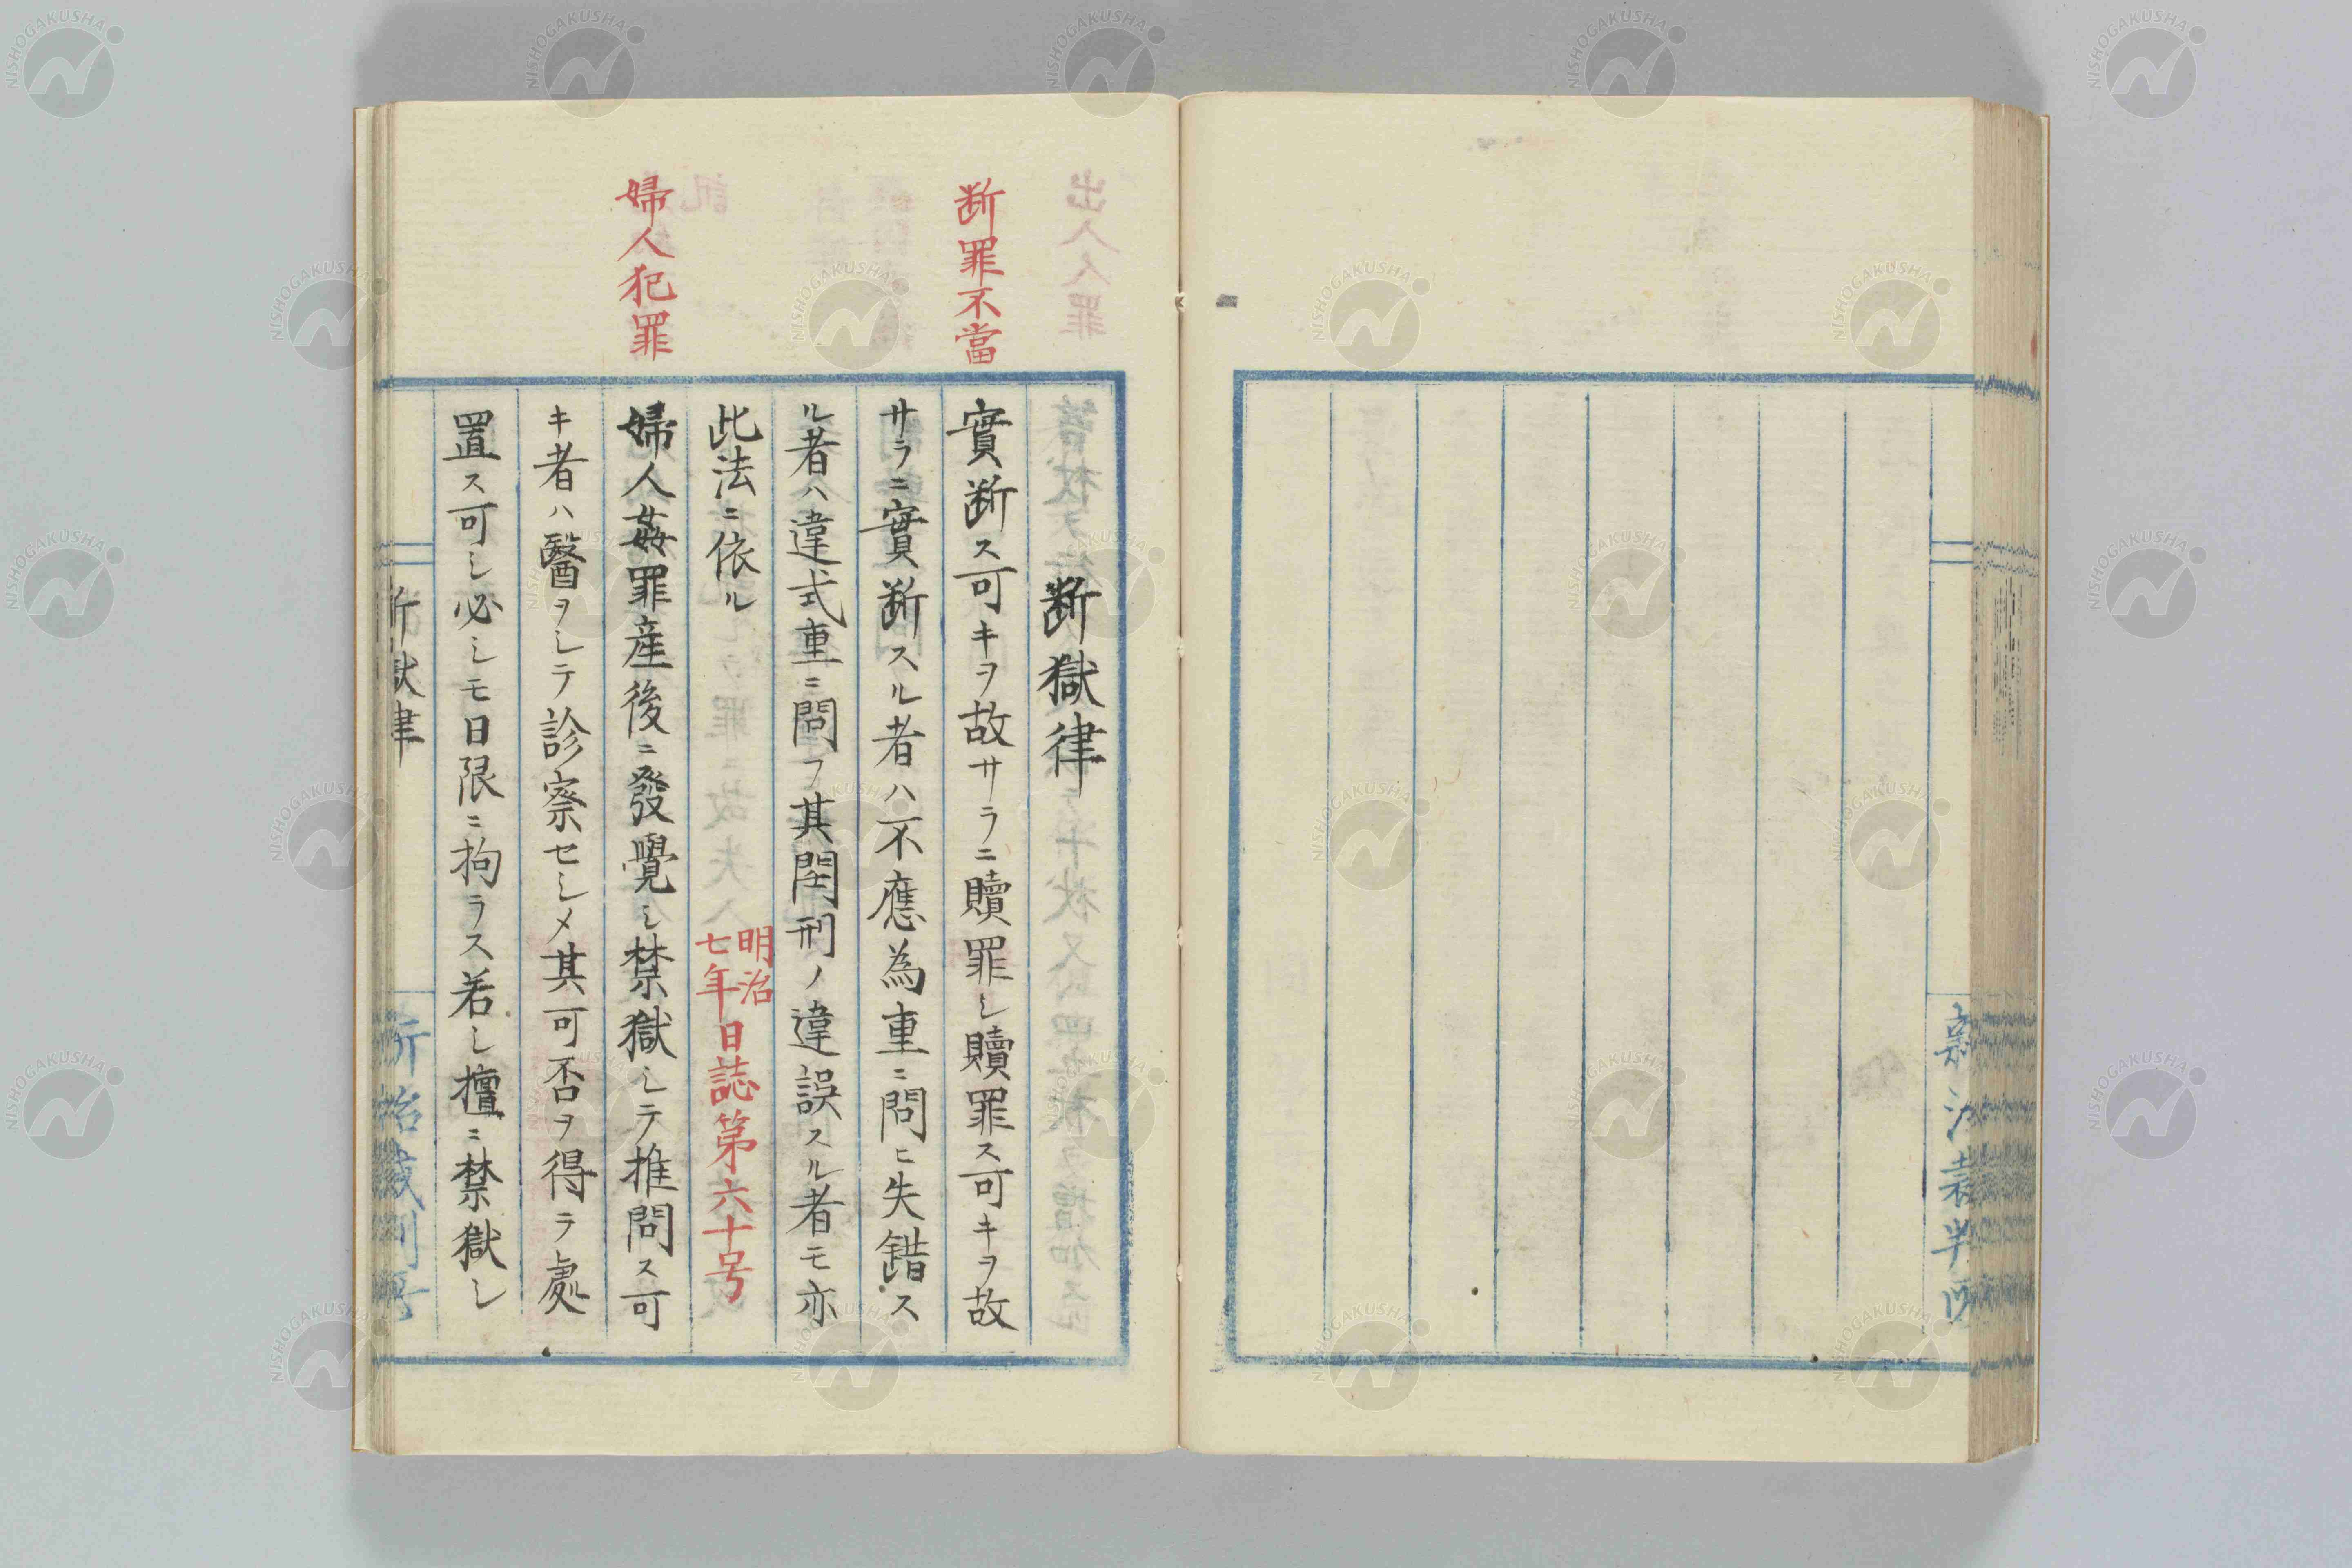 断獄律
断罪不當
實断ス可キヲ故サラニ贖罪シ贖罪ス可キヲ故
サラニ實断スル者ハ不應為重ニ問ヒ失錯ス
ル者ハ違式重ニ問フ其閏刑ノ違誤スル者モ亦
此法ニ依ル
明治
七年
日誌第六十号
婦人犯罪
婦人姦罪産後ニ發覺シ禁獄シテ推問ス可
キ者ハ醫ヲシテ診察セシメ其可否ヲ得ラ處
置ス可シ必シモ日限ニ拘ラス若シ擅ニ禁獄シ
断獄律
NISHOGAKUSHA